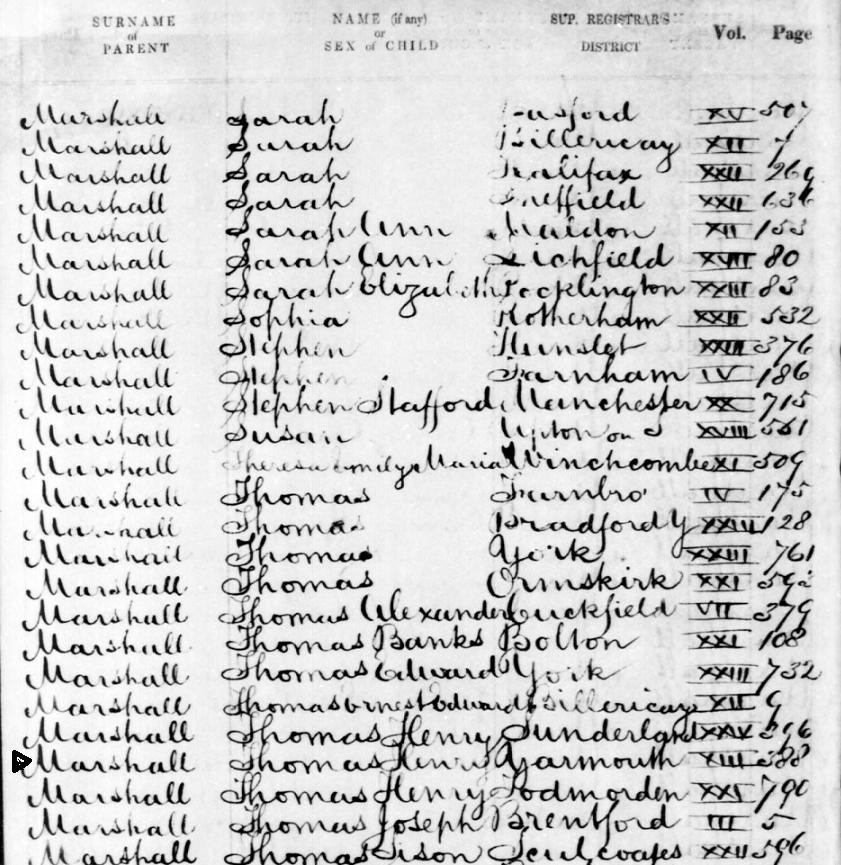 SURNAME of PARENT NAME (if any) or SEX of CHILD SUP. REGISTRAR'S DISTRICT Vol. Page
Marshall Sarah Basford XV 507
Marshall Sarah Billericay XII
Marshall Sarah Halifax XXII 269
Marshall Sarah Sheffield XXII 636
Marshall Sarah Ann Maldon XII 153
Marshall Sarah Ann Lichfield XVII 80
Marshall Sarah Elizabeth Pocklington XXIII 83
Marshall Sophia Rotherham XXII 532
Marshall Stephen Hunslet XXIII 376
Marshall Stephen Farnham IV 186
Marshall Stephen Stafford Manchester XX 715
Marshall Susan Upton on S XVIII 561
Marshall Theresa Emily Maria Winchcombe XI 509
Marshall Thomas Farnbro' IV 175
Marshall Thomas Bradford Y XXIII 128
Marshall Thomas York XXIII 761
Marshall Thomas Ormskirk XXI 592
Marshall Thomas Alexander Cuckfield VII 379
Marshall Thomas Banks Bolton XXI 108
Marshall Thomas Edward York XXIII 732
Marshall Thomas Ernest Edward Billericay XII 9
Marshall Thomas Henry Sunderland XXIV 296
Marshall Thomas Henry Yarmouth XIII 388
Marshall Thomas Henry Todmorden XXI 790
Marshall Thomas Joseph Brentford III 5
Marshall Thomas Sison Sculcoates XXII 596